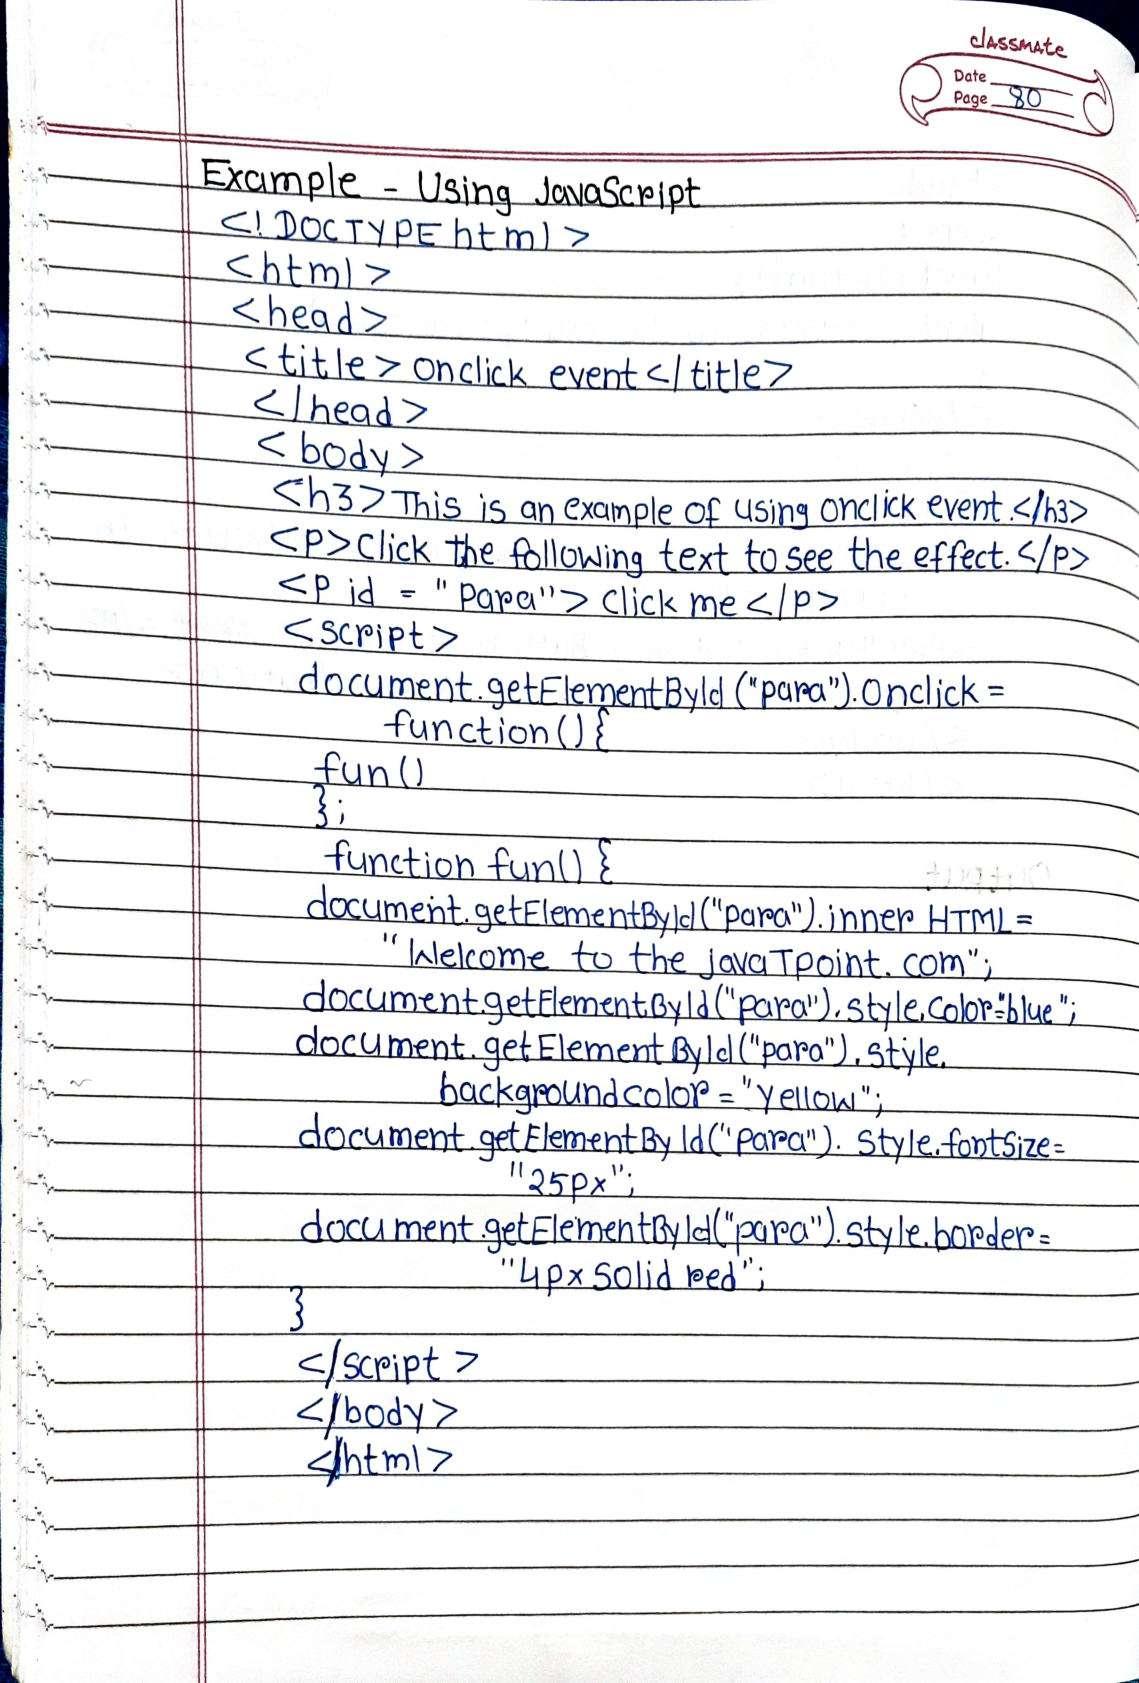 classmate
Date
Page 80
Example - Using JavaScript
<!DOCTYPE html>
<html>
<head>
<title>onclick event</title>
</head>
<body>
<h3>This is an example of using onclick event.</h3>
<p>Click the following text to see the effect.</p>
<p id = "para">click me</p>
<script>
document.getElementById("para").onclick =
function(){
fun()
};
function fun(){
document.getElementById("para").inner HTML =
"Welcome to the javaTpoint.com";
document.getElementById("para").style.color="blue";
document.getElementById("para").style.
backgroundcolor = "yellow";
document.getElementById("para").style.fontSize=
"25px";
document.getElementById("para").style.border=
"4px solid red";
}
</script>
</body>
</html>